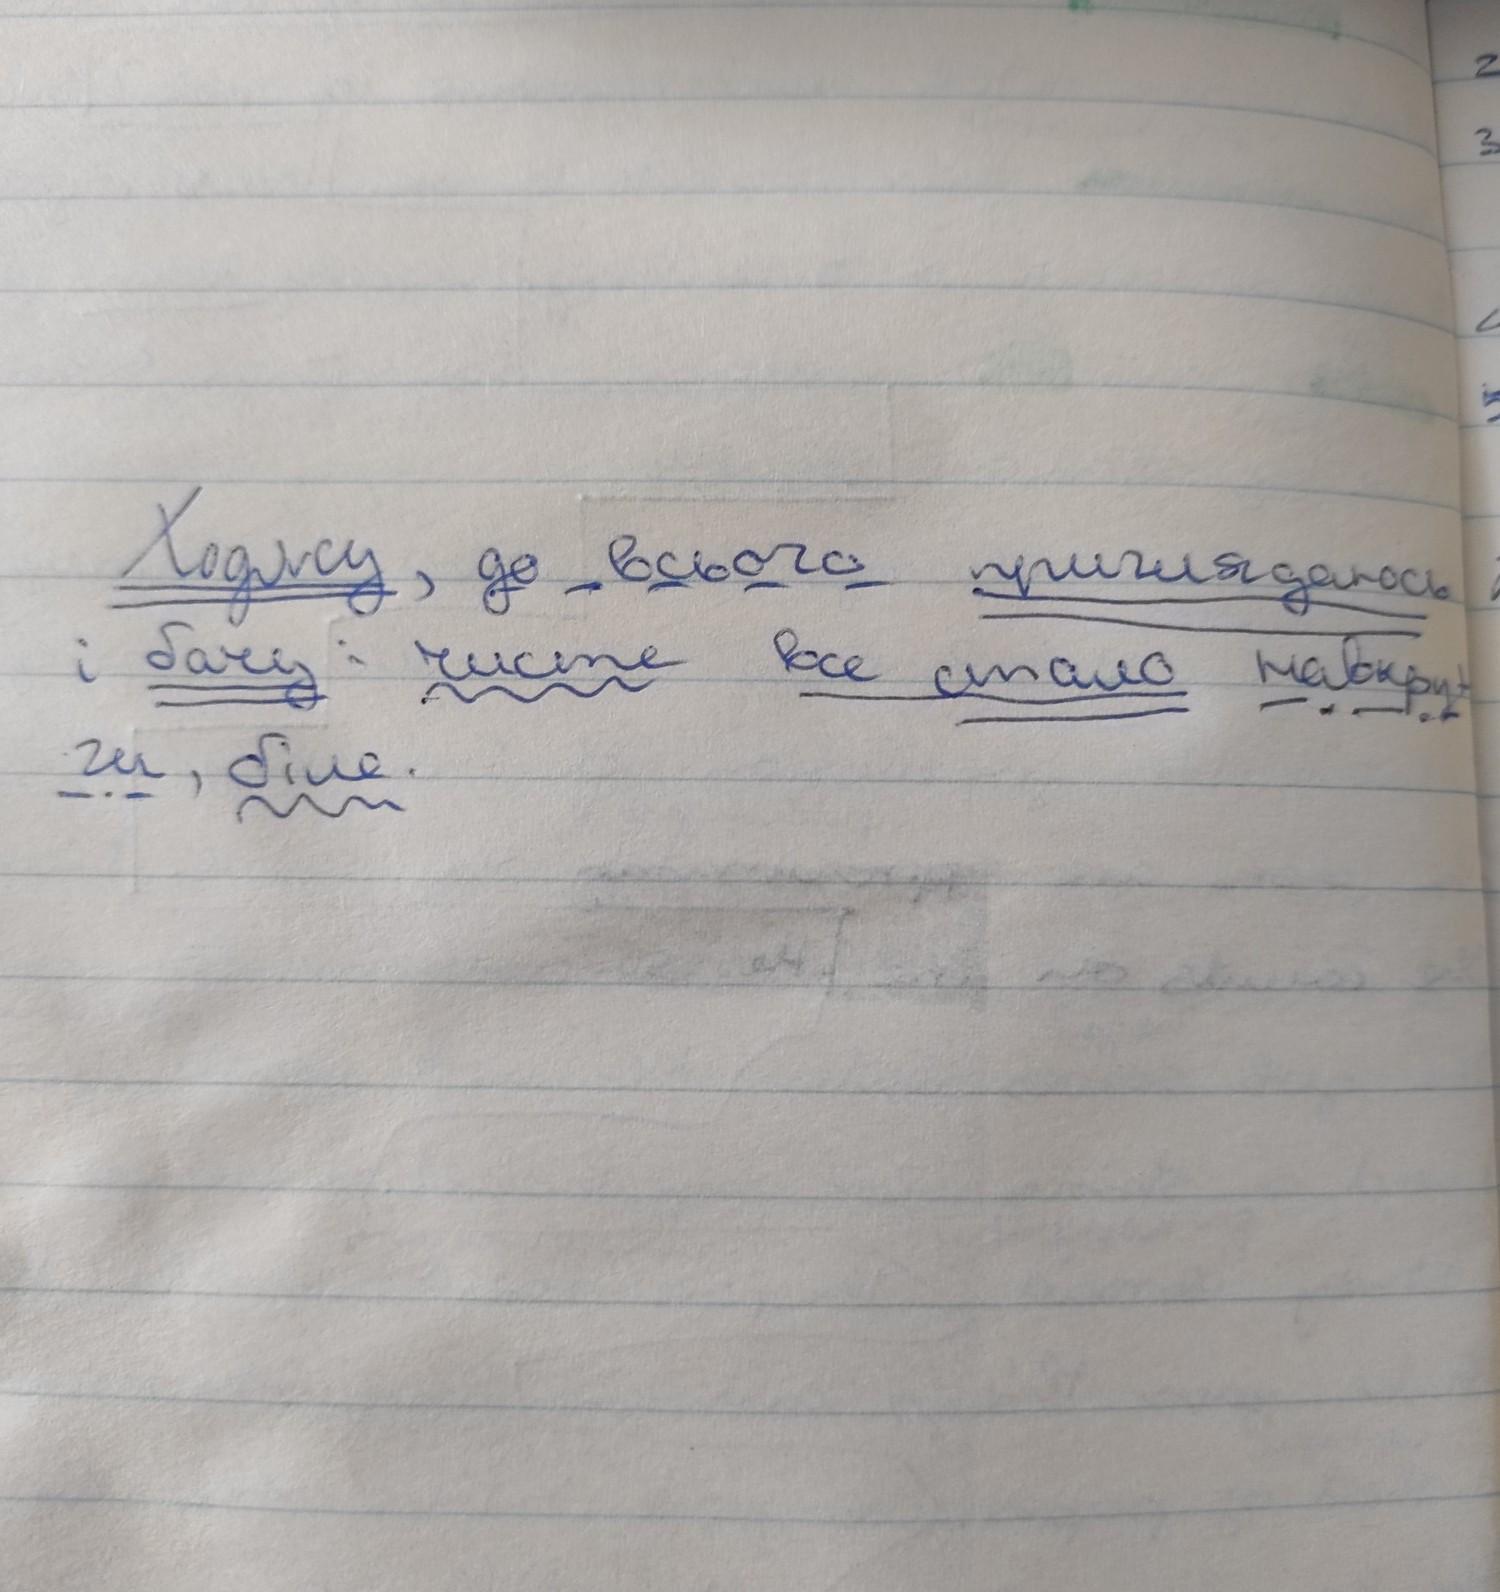 Ходжу, до всього приглядаюсь
і бачу: чисте все стало навкру-
ги, біле.